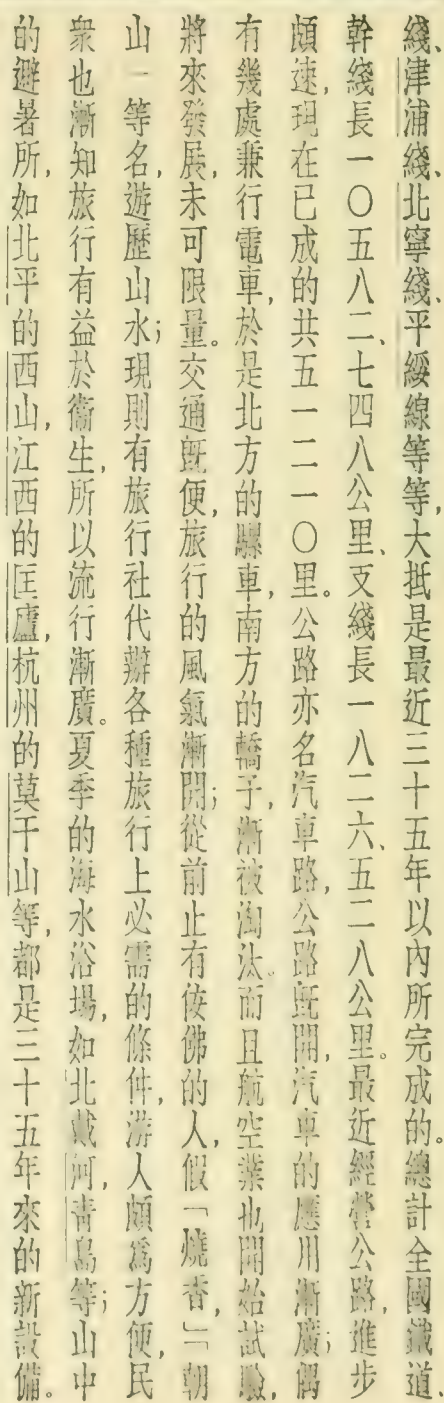 綫、津浦綫、北寧綫、平綏線等等，大抵是最近三十五年以內所完成的。總計全國鐵道、
幹綫長一〇五八二、七四八公里、支綫長一八二六、五二八公里。最近經營公路，進步
頗速，現在已成的共五一二一〇里。公路亦名汽車路，公路既開，汽車的應用漸廣；偶
有幾處兼行電車，於是北方的騾車，南方的轎子，漸被淘汰。而且航空業也開始試驗，
將來發展，未可限量。交通既便，旅行的風氣漸開；從前止有佞佛的人，假「燒香，」「朝
山」等名，遊歷山水；現則有旅行社代辦各種旅行上必需的條件，游人頗爲方便，民
衆也漸知旅行有益於衞生，所以流行漸廣。夏季的海水浴場，如北戴河，靑島等；山中
的避暑所，如北平的西山，江西的匡廬，杭州的莫干山等，都是三十五年來的新設備。